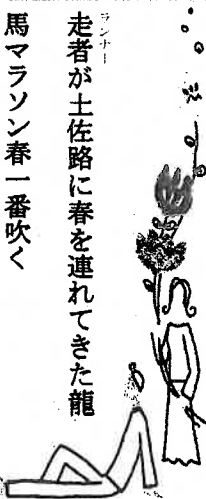 ランナー
走者が土佐路に春を連れてきた龍
馬マラソン春一番吹く